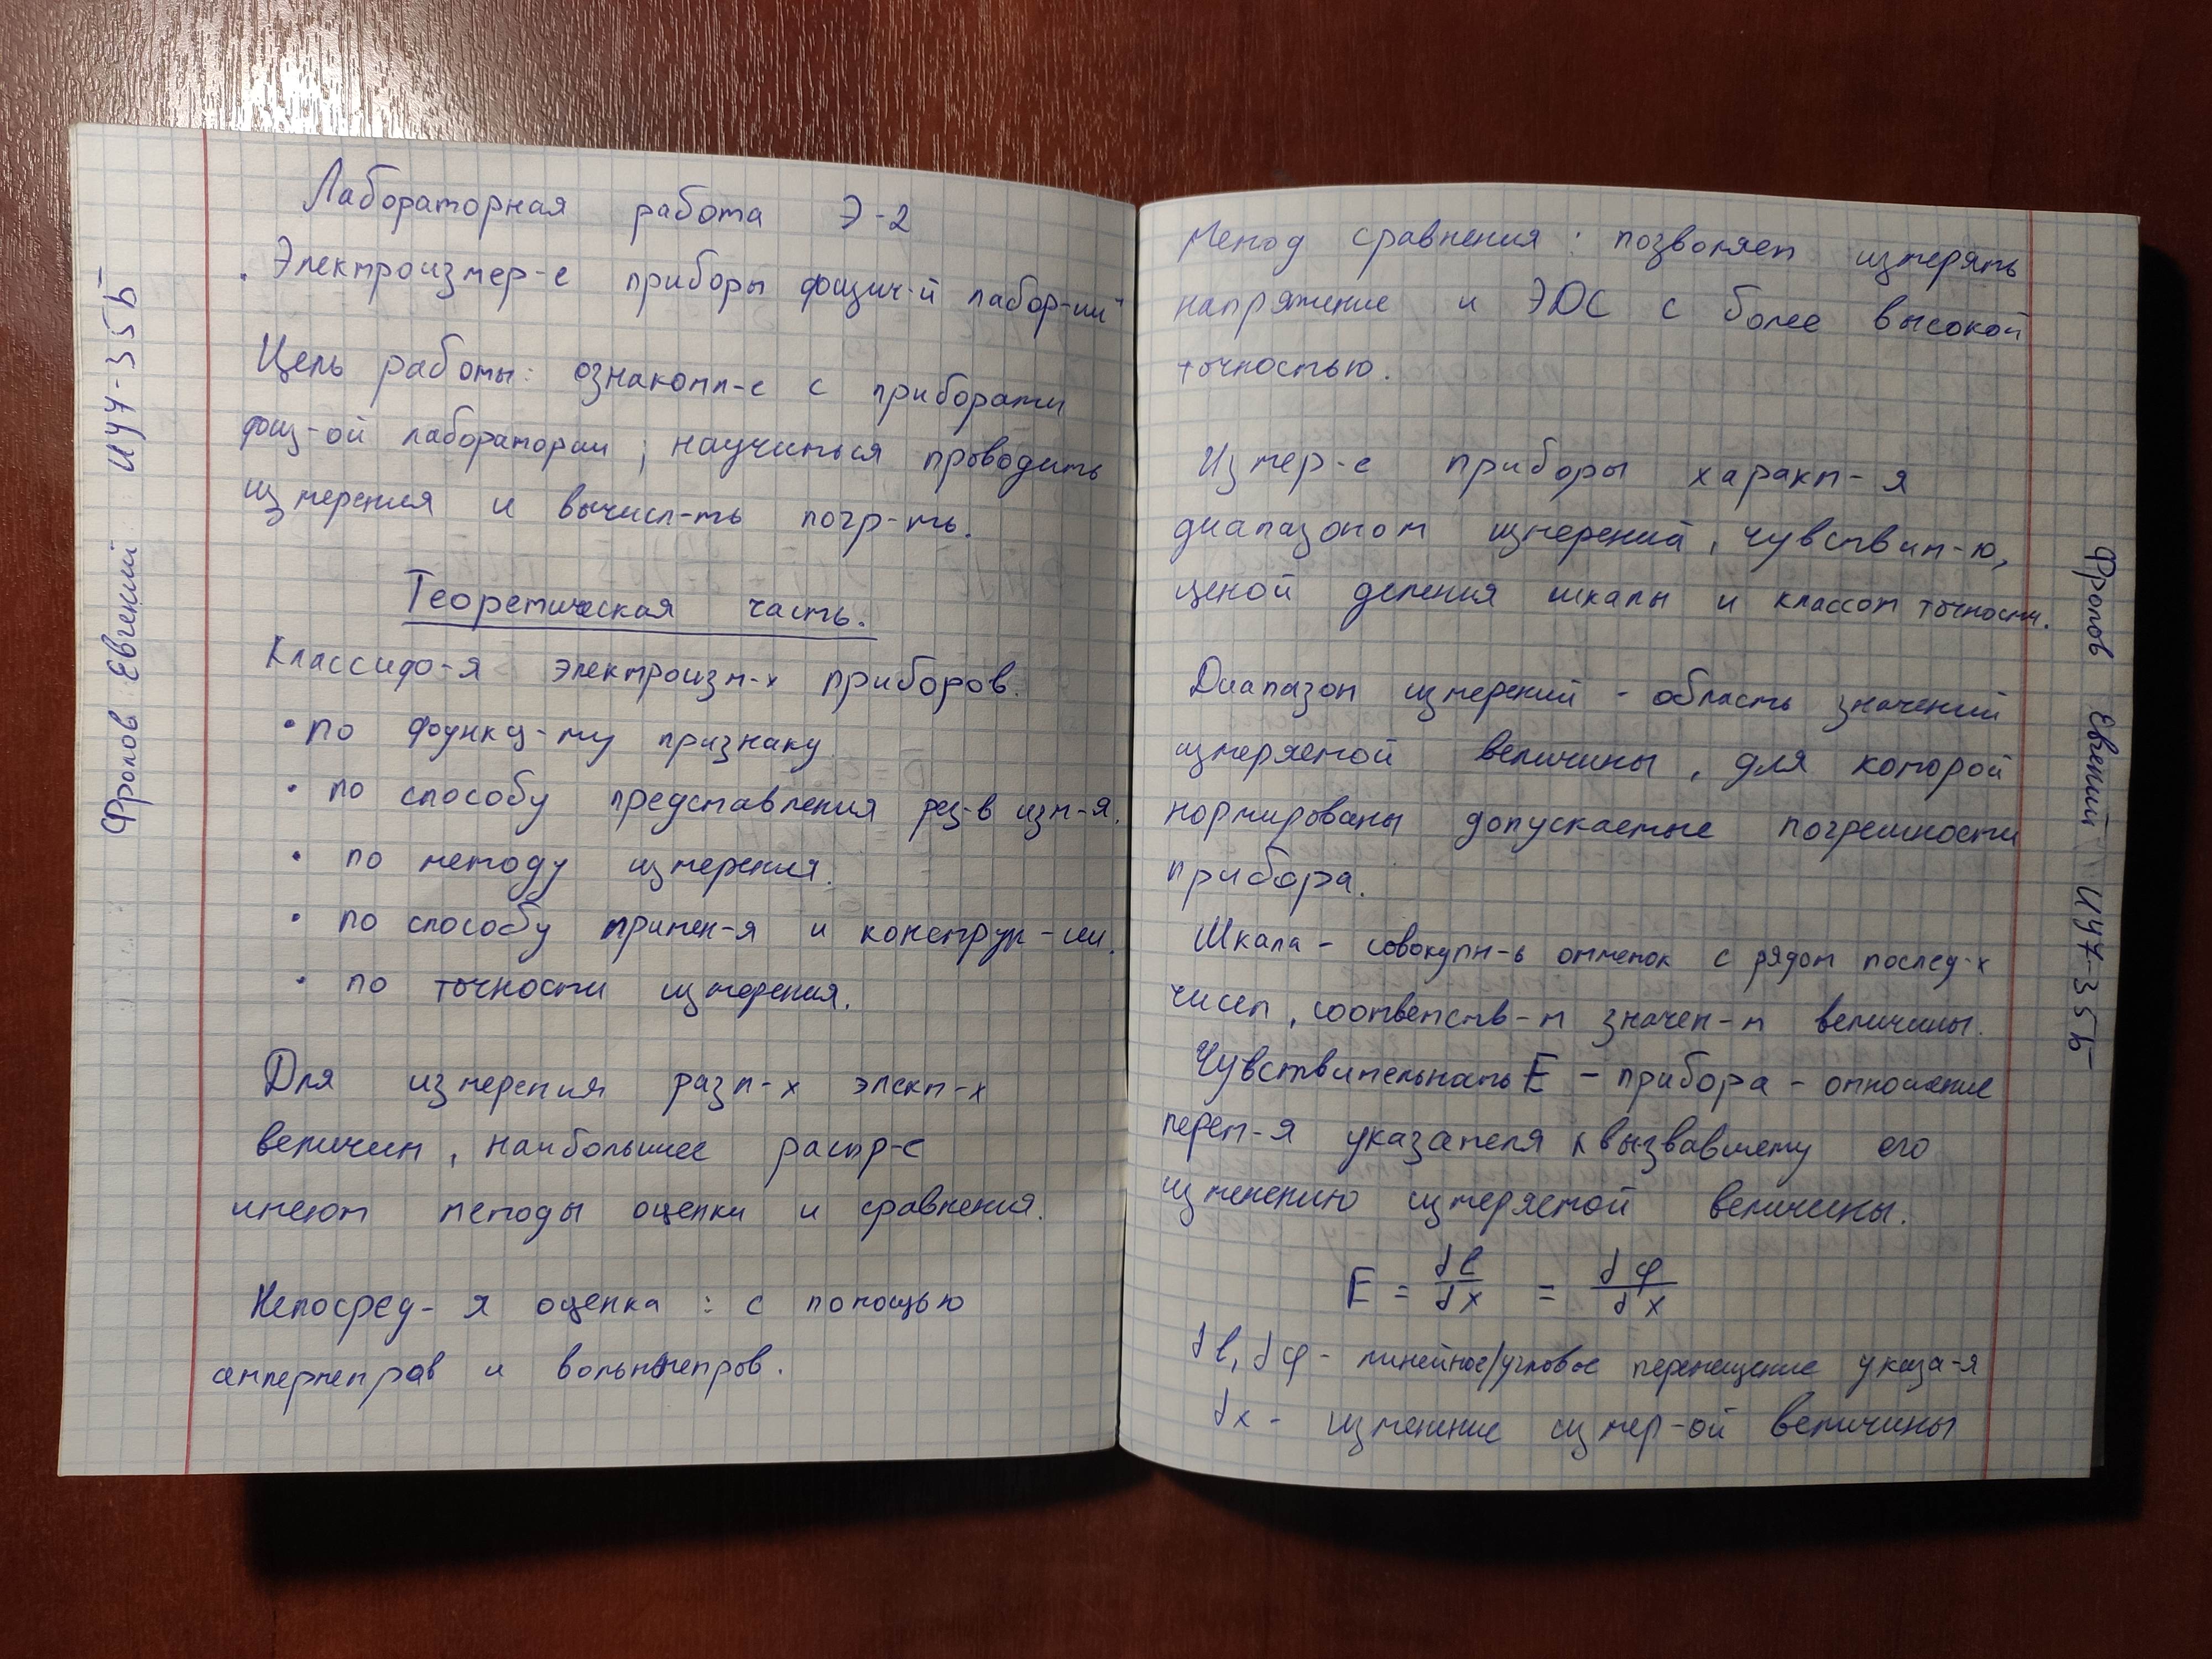 Лабораторная работа Э-2
"Электроизмер-е приборы физич-й лабор-ии"
Цель работы: ознакомл-е с приборами
физ-ой лаборатории; научиться проводить
измерения и вычисл-ть погр-ть.
Теоретическая часть.
Классиф-я электроизм-х приборов.
• по функц-му признаку
• по способу представления рез-в изм-я.
• по методу измерения.
• по способу примен-я и конструк-ии.
• по точности измерения.
Для измерения разл-х элект-х
величин, наибольшее распр-е
имеют методы оценки и сравнения.
Непосред-я оценка: с помощью
амперметров и вольтметров.
Фролов Евгений ИУ7-35Б
Метод сравнения: позволяет измерять
напряжение и ЭДС с более высокой
точностью.
Измер-е приборы характ-я
диапазоном измерений, чувствит-ю,
ценой деления шкалы и классом точности.
Диапазон измерений - область значений
измеряемой величины, для которой
нормированы допускаемые погрешности
прибора.
Шкала - совокупн-ь отметок с рядом послед-х
чисел, соответств-м значен-м величины.
Чувствительность E - прибора - отношение
перем-я указателя к вызвавшему его
изменению измеряемой величины.
E = δl/δx = δφ/δx
δl, δφ - линейное/угловое перемещение указа-я
δx - изменение измер-ой величины
Фролов Евгений ИУ7-35Б